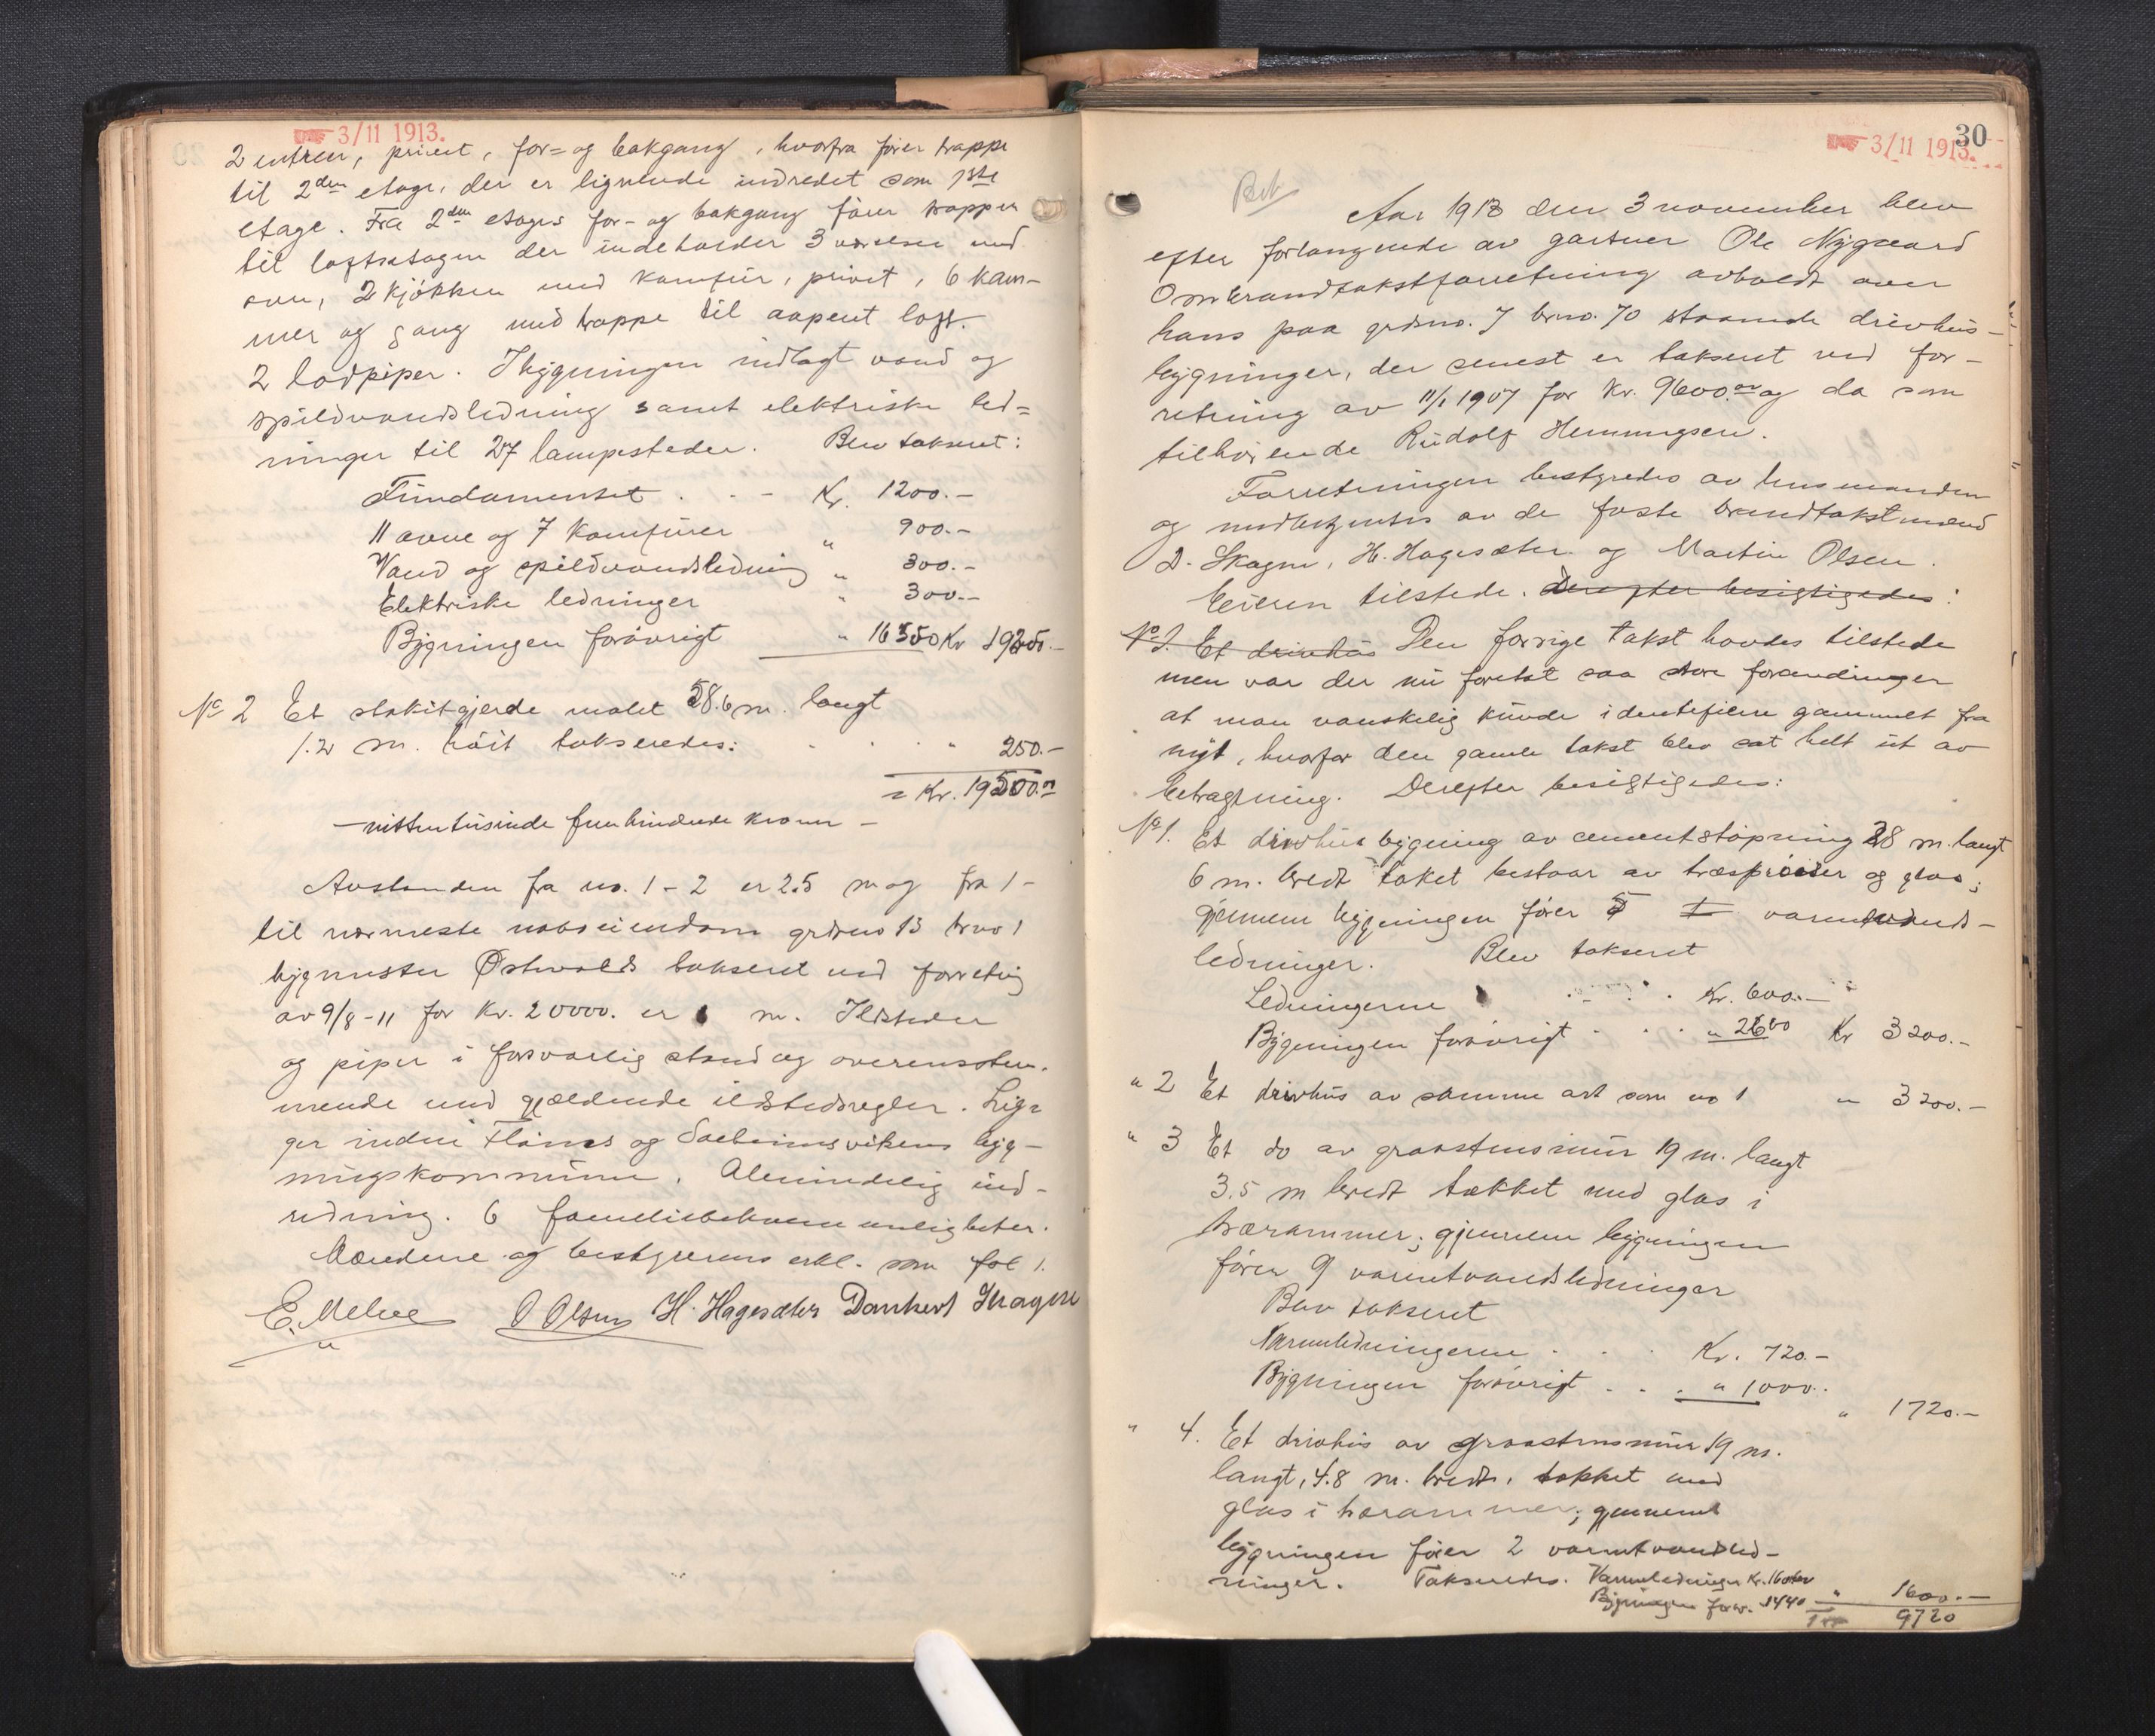 3/11 1913.
2 entreer, privet, for= og bakgang, hvorfra fører trappe
til 2den etage, der er lignende indredet som 1ste
etage. Fra 2den etages for- og bakgang fører trapper
til loftsetagen der indeholder 3 værelser med
ovn, 2 kjøkken med komfür, privet, 6 kam-
mer og gang med trappe til aapent loft.
2 lodpiper. I bygningen indlagt vand og
spildvandsledning samt elektriske led=
ninger til 27 lampesteder. Blev taksert:
Fundamentet . . - Kr. 1200.-
11 ovne og 7 komfürer " 900.-
Vand og spildvandsledning " 300.-
Elektriske ledninger " 300.-
Bygningen forøvrigt " 16550 Kr 19250.-
No 2 Et stakitgjerde malet 58.6 m. langt
1.2 m. høit takseredes: . . . " 250.-
= Kr. 19500.00
- nitten tusinde fem hundrede kroner -
Avstanden fra no. 1 - 2 er 2.5 m og fra 1 -
til nærmeste naboeiendom grdsno 13 brno 1
bygmester Østvolds taksert ved forretnig
av 9/8-11 for Kr. 20000. er m. Ildsteder
og piper i forsvarlig stand og overensstem.
mende med gjældende ildstedsregler. Lig=
ger inden Fløines og Solheimsvikens byg-
ningskommune. Almindelig ind-
redning. 6 familiebekvemmeligheter.
Mændene og bestyrerens erkl. som fol 1.
E. Melve O Olsen H. Hagesæter Dankert Skagen
30
3/11 1913.
Aar 1913 den 3 november blev
efter forlangende av gartner Ole Nygaard
Ombrandtakstforretning avholdt over
hans paa grdsno. 7 brno. 70 staaende drivhus-
bygninger, der senest er taksert ved for-
retning av 11/1 1907 for Kr. 9600.00 og da som
tilhørende Rudolf Hemmingsen.
Forretningen bestyredes av lensmanden
og medbetjentes av de faste brandtakstmænd
D. Skagen, H. Hagesæter og Martin Olsen.
Eieren tilstede. Derefter besigtigedes:
No 1. Et drivhus Den forrige takst havdes tilstede
men var der nu foretat saa store forandringer
at man vanskelig kunde identifisere gammelt fra
nyt, hvorfor den gamle takst blev sat helt ut av
betragtning. Derefter besigtigedes:
No 1. Et drivhus bygning av cementstøpning 28 m. langt
6 m. bredt taket bestaar av træsprosser og glas;
gjennem bygningen fører 5 varmtvands-
ledninger. Blev taksert
Ledningerne . . . Kr. 600.-
Bygningen forøvrigt . . . " 2600 Kr 3200.-
" 2 Et drivhus av samme art som no 1 " 3200.-
" 3 Et do av graastensmur 19 m. langt
3.5 m bredt tækket med glas i
trærammer; gjennem bygningen
fører 9 varmtvandsledninger
Blev taksert
Varmeledningerne . . . Kr. 720.-
Bygningen forøvrigt . . . " 1000.-
" 1720.-
" 4. Et drivhus av graastensmur 19 m.
langt, 4.8 m. bredt, tækket med
glas i trærammer; gjennem
bygningen fører 2 varmtvandsled-
ninger. Takseredes. Varmeledninger Kr. 160
Bygningen forøv. 1440 " 1600.-
9720